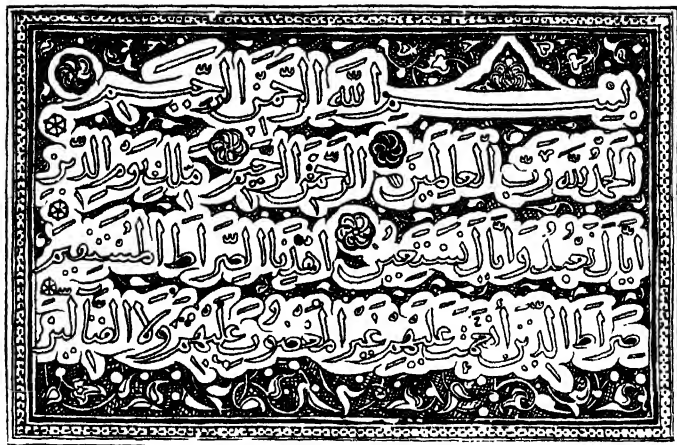 بِسْمِ اللَّهِ الرَّحْمَٰنِ الرَّحِيمِ
الْحَمْدُ لِلَّهِ رَبِّ الْعَالَمِينَ الرَّحْمَٰنِ الرَّحِيمِ مَٰلِكِ يَوْمِ الدِّينِ
إِيَّاكَ نَعْبُدُ وَإِيَّاكَ نَسْتَعِينُ اهْدِنَا الصِّرَاطَ الْمُسْتَقِيمَ
صِرَاطَ الَّذِينَ أَنْعَمْتَ عَلَيْهِمْ غَيْرِ الْمَغْضُوبِ عَلَيْهِمْ وَلَا الضَّالِّينَ